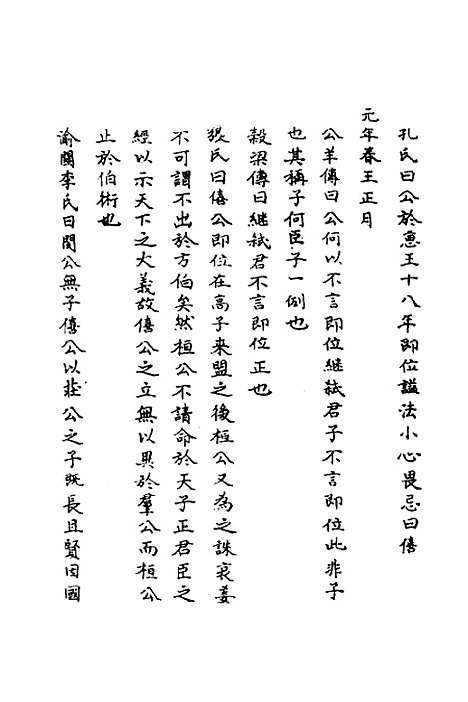 孔氏曰公於惠王十八年即位諡法小心畏忌曰僖
元年春王正月
公羊傳曰公何以不言即位繼弒君子不言即位此非子
也其稱子何臣子一例也
穀梁傳曰繼弒君不言即位正也
張氏曰僖公即位在高子来盟之後桓公又為之誅哀姜
不可謂不出於方伯矣然桓公不請命於天子正君臣之
經以示天下之大義故僖公之立無以異於羣公而桓公
止於伯術也
渝關李氏曰閔公無子僖公以莊公之子既長且賢因國